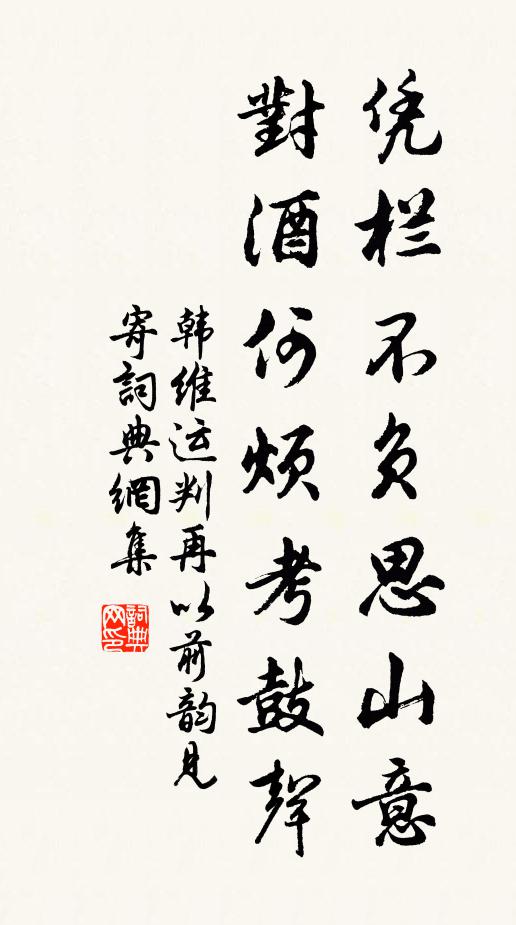 凭栏不负思山意
對酒何烦考鼓聲
韩维运判再以前韵見
寄詞典網集
詞典网印